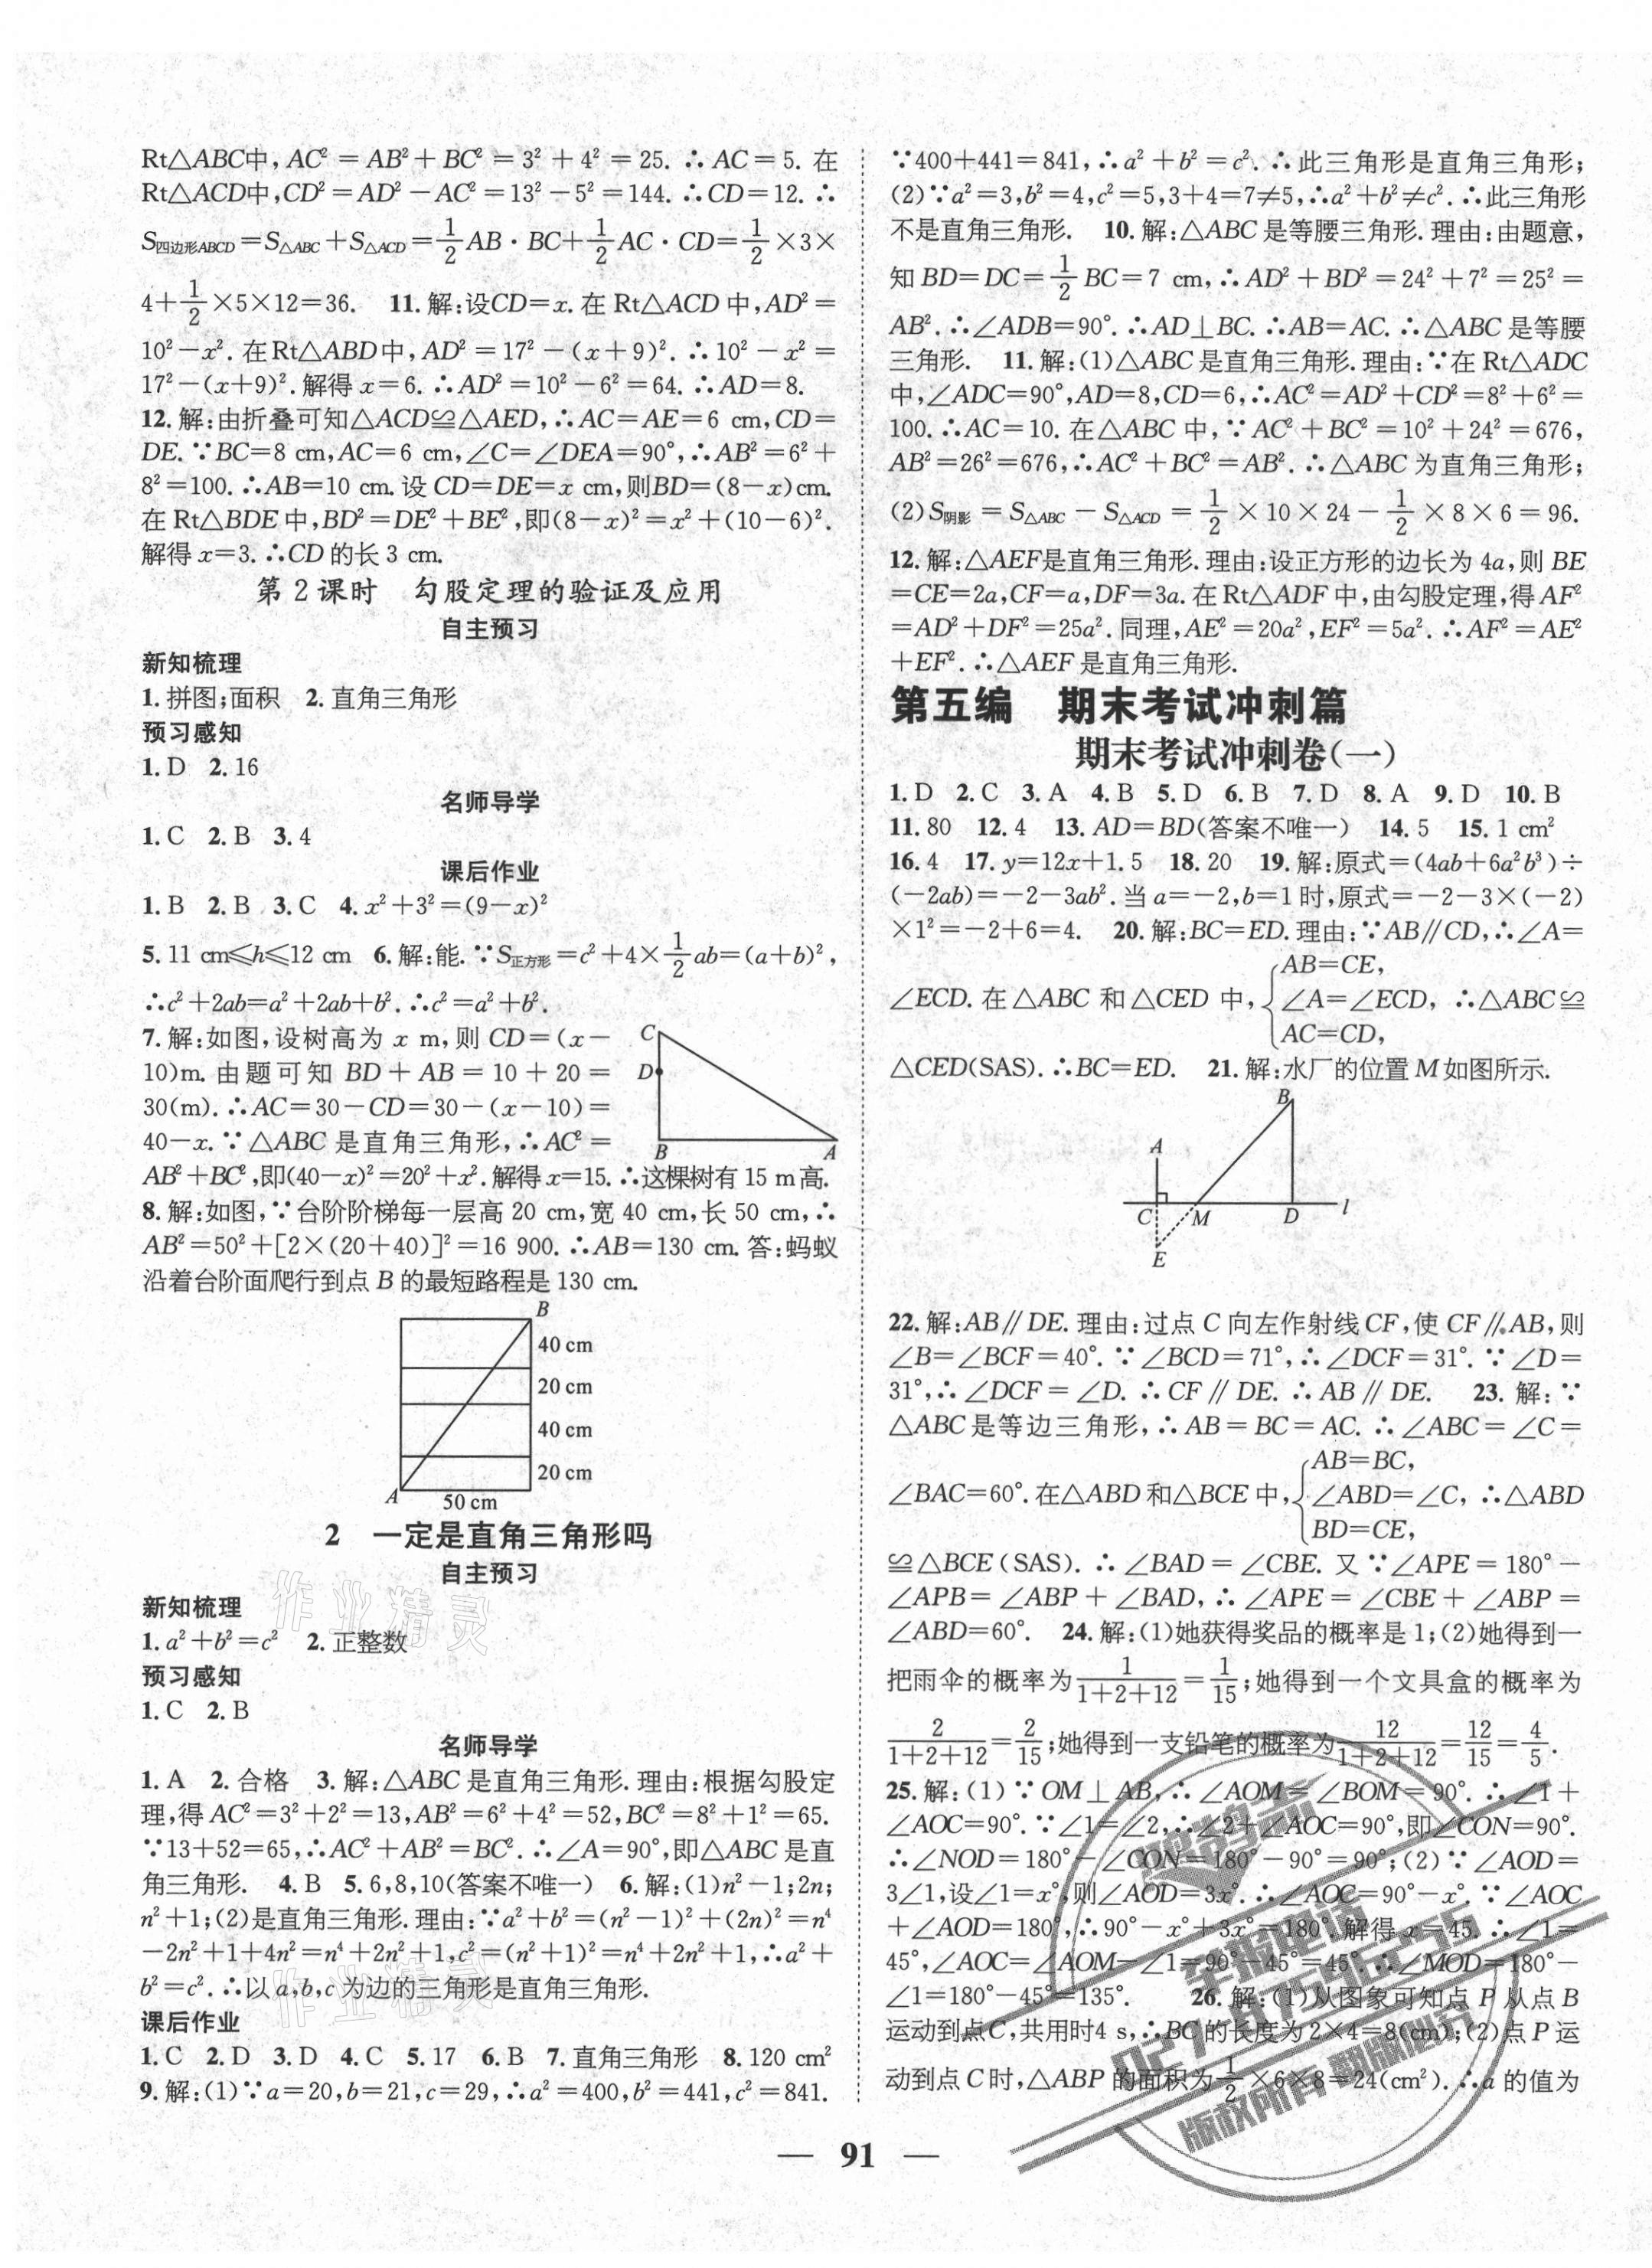 Rt△ABC中,AC²=AB²+BC²=3²+4²=25.∴AC=5.在
Rt△ACD中,CD²=AD²-AC²=13²-5²=144.∴CD=12.∴
S四边形ABCD=S△ABC+S△ACD=1/2AB·BC+1/2AC·CD=1/2×3×
4+1/2×5×12=36. 11.解:设CD=x.在Rt△ACD中,AD²=
10²-x².在Rt△ABD中,AD²=17²-(x+9)².∴10²-x²=
17²-(x+9)².解得x=6.∴AD²=10²-6²=64.∴AD=8.
12.解:由折叠可知△ACD≌△AED,∴AC=AE=6 cm,CD=
DE.∵BC=8 cm,AC=6 cm,∠C=∠DEA=90°,∴AB²=6²+
8²=100.∴AB=10 cm.设CD=DE=x cm,则BD=(8-x)cm.
在Rt△BDE中,BD²=DE²+BE²,即(8-x)²=x²+(10-6)².
解得x=3.∴CD的长3 cm.
第2课时 勾股定理的验证及应用
自主预习
新知梳理
1.拼图;面积 2.直角三角形
预习感知
1.D 2.16
名师导学
1.C 2.B 3.4
课后作业
1.B 2.B 3.C 4.x²+3²=(9-x)²
5.11 cm≤h≤12 cm 6.解:能.∵S正方形=c²+4×1/2ab=(a+b)²,
∴c²+2ab=a²+2ab+b².∴c²=a²+b².
7.解:如图,设树高为x m,则CD=(x-
10)m.由题可知BD+AB=10+20=
30(m).∴AC=30-CD=30-(x-10)=
40-x.∵△ABC是直角三角形,∴AC²=
C
D
B
A
AB²+BC²,即(40-x)²=20²+x².解得x=15.∴这棵树有15 m高.
8.解:如图,∵台阶阶梯每一层高20 cm,宽40 cm,长50 cm,∴
AB²=50²+[2×(20+40)]²=16 900.∴AB=130 cm.答:蚂蚁
沿着台阶面爬行到点B的最短路程是130 cm.
B
40 cm
20 cm
40 cm
20 cm
A
50 cm
2 一定是直角三角形吗
自主预习
新知梳理
1.a²+b²=c² 2.正整数
预习感知
1.C 2.B
名师导学
1.A 2.合格 3.解:△ABC是直角三角形.理由:根据勾股定
理,得AC²=3²+2²=13,AB²=6²+4²=52,BC²=8²+1²=65.
∵13+52=65,∴AC²+AB²=BC².∴∠A=90°,即△ABC是直
角三角形. 4.B 5.6,8,10(答案不唯一) 6.解:(1)n²-1;2n;
n²+1;(2)是直角三角形.理由:∵a²+b²=(n²-1)²+(2n)²=n⁴
-2n²+1+4n²=n⁴+2n²+1,c²=(n²+1)²=n⁴+2n²+1,∴a²+
b²=c².∴以a,b,c为边的三角形是直角三角形.
课后作业
1.C 2.D 3.D 4.C 5.17 6.B 7.直角三角形 8.120 cm²
9.解:(1)∵a=20,b=21,c=29,∴a²=400,b²=441,c²=841.
∵400+441=841,∴a²+b²=c².∴此三角形是直角三角形;
(2)∵a²=3,b²=4,c²=5,3+4=7≠5,∴a²+b²≠c².∴此三角形
不是直角三角形. 10.解:△ABC是等腰三角形.理由:由题意,
知BD=DC=1/2BC=7 cm,∴AD²+BD²=24²+7²=25²=
AB².∴∠ADB=90°.∴AD⊥BC.∴AB=AC.∴△ABC是等腰
三角形. 11.解:(1)△ABC是直角三角形.理由:∵在Rt△ADC
中,∠ADC=90°,AD=8,CD=6,∴AC²=AD²+CD²=8²+6²=
100.∴AC=10.在△ABC中,∵AC²+BC²=10²+24²=676,
AB²=26²=676,∴AC²+BC²=AB².∴△ABC为直角三角形;
(2)S阴影=S△ABC-S△ACD=1/2×10×24-1/2×8×6=96.
12.解:△AEF是直角三角形.理由:设正方形的边长为4a,则BE
=CE=2a,CF=a,DF=3a.在Rt△ADF中,由勾股定理,得AF²
=AD²+DF²=25a².同理,AE²=20a²,EF²=5a².∴AF²=AE²
+EF².∴△AEF是直角三角形.
第五编 期末考试冲刺篇
期末考试冲刺卷(一)
1.D 2.C 3.A 4.B 5.D 6.B 7.D 8.A 9.D 10.B
11.80 12.4 13.AD=BD(答案不唯一) 14.5 15.1 cm²
16.4 17.y=12x+1.5 18.20 19.解:原式=(4ab+6a²b³)÷
(-2ab)=-2-3ab².当a=-2,b=1时,原式=-2-3×(-2)
×1²=-2+6=4. 20.解:BC=ED.理由:∵AB∥CD,∴∠A=
∠ECD.在△ABC和△CED中,{AB=CE, ∠A=∠ECD, AC=CD, ∴△ABC≌
△CED(SAS).∴BC=ED. 21.解:水厂的位置M如图所示.
B
A
C
M
D
l
E
22.解:AB∥DE.理由:过点C向左作射线CF,使CF∥AB,则
∠B=∠BCF=40°.∵∠BCD=71°,∴∠DCF=31°.∵∠D=
31°,∴∠DCF=∠D.∴CF∥DE.∴AB∥DE. 23.解:∵
△ABC是等边三角形,∴AB=BC=AC.∴∠ABC=∠C=
∠BAC=60°.在△ABD和△BCE中,{AB=BC, ∠ABD=∠C, BD=CE, ∴△ABD
≌△BCE(SAS).∴∠BAD=∠CBE.又∵∠APE=180°-
∠APB=∠ABP+∠BAD,∴∠APE=∠CBE+∠ABP=
∠ABD=60°. 24.解:(1)她获得奖品的概率是1;(2)她得到一
把雨伞的概率为1/(1+2+12)=1/15;她得到一个文具盒的概率为
2/(1+2+12)=2/15;她得到一支铅笔的概率为12/(1+2+12)=12/15=4/5.
25.解:(1)∵OM⊥AB,∴∠AOM=∠BOM=90°.∴∠1+
∠AOC=90°.∵∠1=∠2,∴∠2+∠AOC=90°,即∠CON=90°.
∴∠NOD=180°-∠CON=180°-90°=90°;(2)∵∠AOD=
3∠1,设∠1=x°,则∠AOD=3x°.∴∠AOC=90°-x°.∵∠AOC
+∠AOD=180°,∴90°-x°+3x°=180°.解得x=45.∴∠1=
45°,∠AOC=∠AOM-∠1=90°-45°=45°.∴∠MOD=180°-
∠1=180°-45°=135°. 26.解:(1)从图象可知点P从点B
运动到点C,共用时4 s,∴BC的长度为2×4=8(cm);(2)点P运
动到点C时,△ABP的面积为1/2×6×8=24(cm²).∴a的值为
— 91 —
作业精灵
作业精灵
版权所有 翻版必究